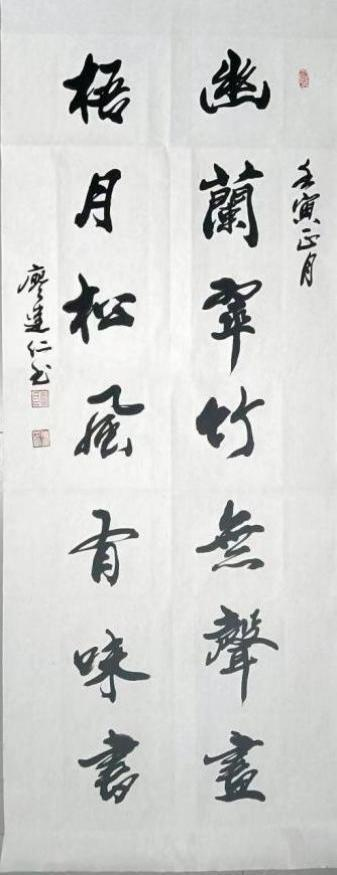 壬寅正月
幽蘭翠竹無聲畫
梧月松風有味書
廖達仁书